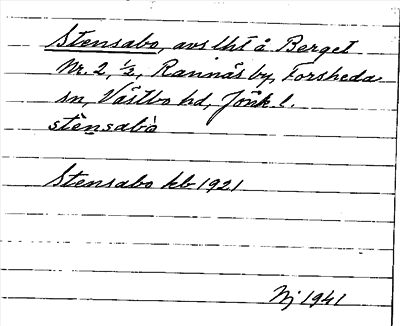 Stensabo, avs lht å Berget
Nr. 2, ½, Rannäs by, Forsheda
sn, Västbo hd, Jönk l.
stènsabò
Stensabo kb 1921
Nj 1941